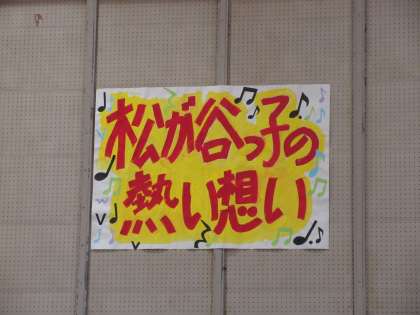 松が谷っ子の
熱い想い